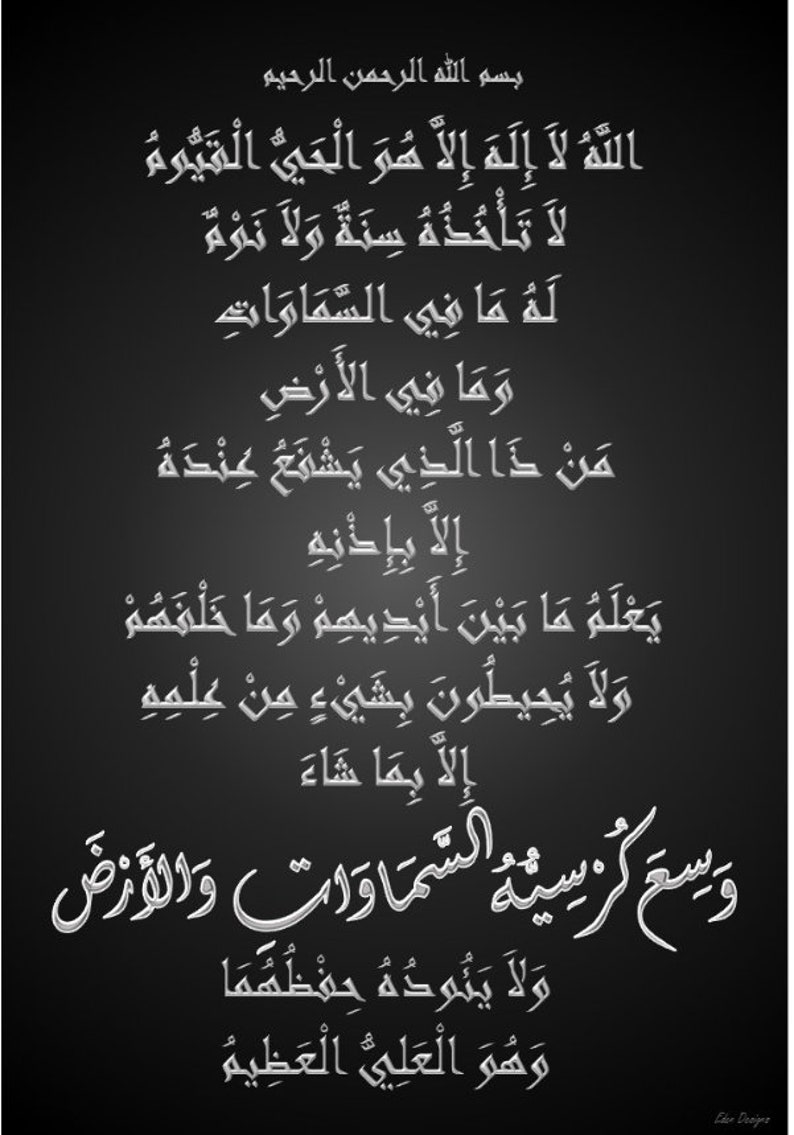 بسم الله الرحمن الرحيم
اللَّهُ لاَ إِلَهَ إِلاَّ هُوَ الْحَيُّ الْقَيُّومُ
لاَ تَأْخُذُهُ سِنَةٌ وَلاَ نَوْمٌ
لَهُ مَا فِي السَّمَاوَاتِ
وَمَا فِي الأَرْضِ
مَنْ ذَا الَّذِي يَشْفَعُ عِنْدَهُ
إِلاَّ بِإِذْنِهِ
يَعْلَمُ مَا بَيْنَ أَيْدِيهِمْ وَمَا خَلْفَهُمْ
وَلاَ يُحِيطُونَ بِشَيْءٍ مِنْ عِلْمِهِ
إِلاَّ بِمَا شَاءَ
وَسِعَ كُرْسِيُّهُ السَّمَاوَاتِ وَالأَرْضَ
وَلاَ يَئُودُهُ حِفْظُهُمَا
وَهُوَ الْعَلِيُّ الْعَظِيمُ
Eden Designs